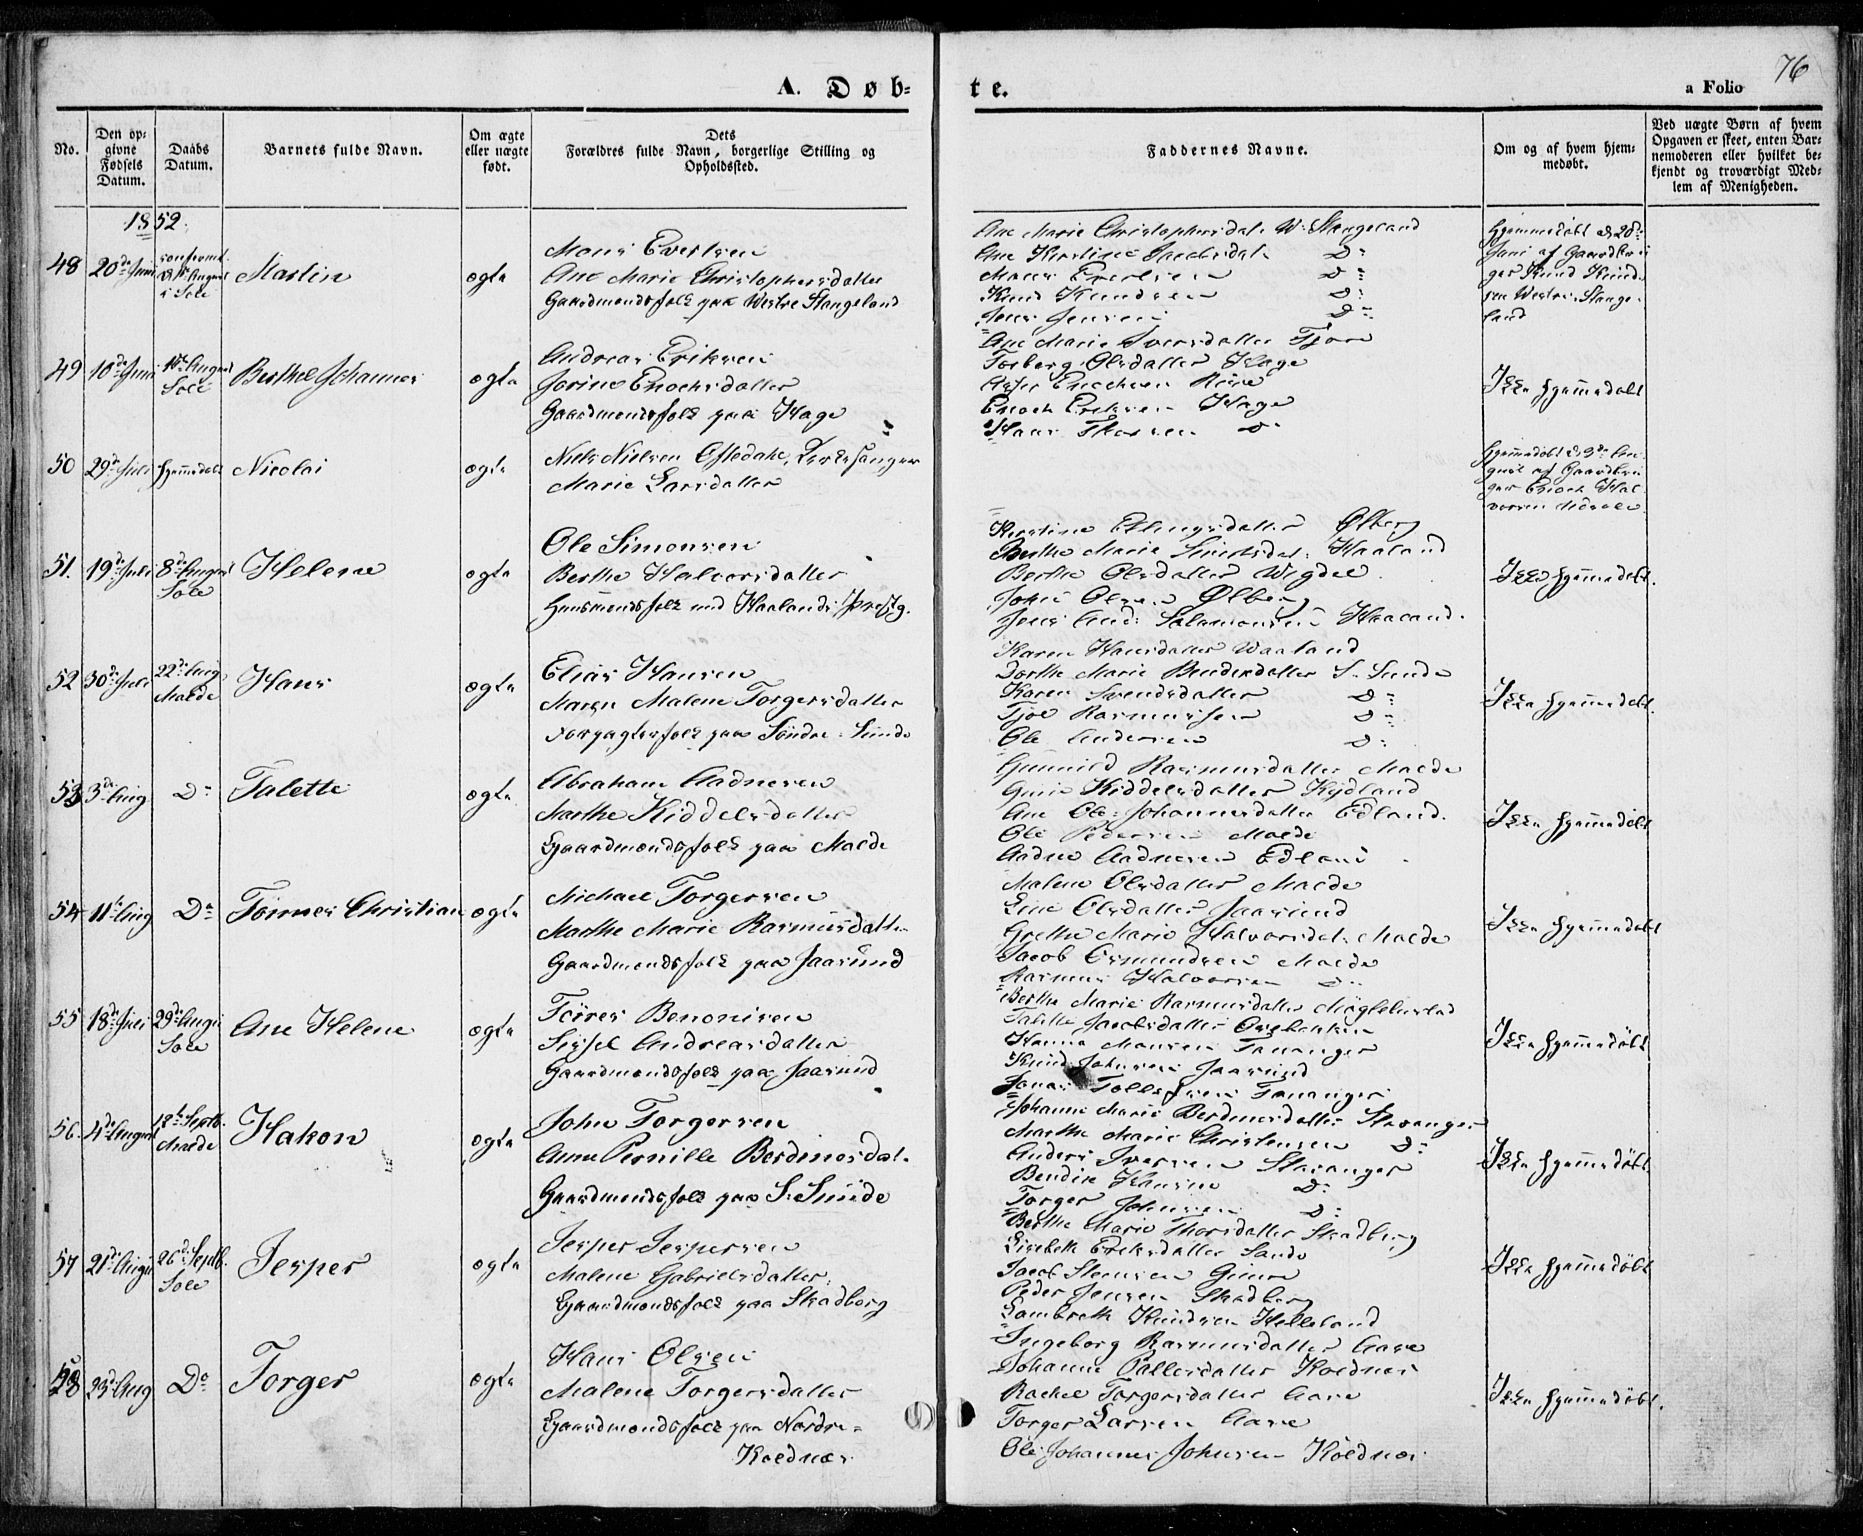 A. Døb-
te.
a Folio 76
No.
Den op-
givne
Fødsels
Datum.
Daabs
Datum.
Barnets fulde Navn.
Om ægte
eller uægte
født.
Dets
Forældres fulde Navn, borgerlige Stilling og
Opholdssted.
Faddernes Navne.
Om og af hvem hjem-
medøbt.
Ved uægte Børn af hvem
Opgaven er skeet, enten Bar-
nemoderen eller hvilket be-
kjendt og troværdigt Med-
lem af Menigheden.
1852.
48
20de Juni
Sole
Martin
ægte
Mons Evertsen
Ane Marie Christophersdatter
Gaardmandsfolk paa Westre Stangeland
Ane Marie Christophersdat. W. Stangeland
Ane Kirstine Jacobsdat. Do
Mons Evertsen Do
Knud Knudsen Do
Jens Jensen Do
Hjemmedøbt d. 20de
Juni af Gaardbru
ger Knud Knud-
sen Westre Stange-
land
49
10de Juni
August
Sole
Berthel Johannes
ægte
Andreas Eriksen
Jorine Enochsdatter
Gaardmandsfolk paa Hage
Ane Marie Iversdatter Tjora
Torborg Olsdatter Hage
Enochsen
Enoch Eriksen Hage
Hans Do
Ikke hjemmedøbt
50
29de Juli
hjemmedøbt
Nicolai
ægte
Niels Nielsen Oftedahl, Kirkesanger
Marie Larsdatter
Hjemmedøbt d. 3de Au-
gust af Gaardbru
ger Enoch Hal-
vorsen
51.
19de Juli
8de August
Sole
Helene
ægte
Ole Simonsen
Berthe Halvorsdatter
Huusmandsfolk ved Haalands Præstg.
Kirstine Erlingsdatter Ølberg
Berthe Marie Simonsdat. Haaland
Berthe Olsdatter Wigdel
John Olsen Ølberg
Jens And. Salamonsen Haaland.
Ikke hjemmedøbt.
52
30de Juli
22de Aug
Malde
Hans
ægte
Elias Hansen
Maren Malene Torgersdatter
Forpagterfolk paa Søndre Sunde
Karen Hansdatter Waaland
Dorthe Marie Bendixdatter S. Sunde
Karen Svendsdatter Do
Tjøl Rasmussen Do
Ole Andersen Do
Ikke hjemmedøbt
53
3de Aug
Do
Talette
ægte
Abraham Aadnesen
Marthe Kiddelsdatter
Gaardmandsfolk paa Malde
Gunnild Rasmusdatter Malde
Guri Kiddelsdatter Kydland
Ane Ole Johannesdatter Edland.
Ole Pedersen Malde
Aadne Aadnesen Edland
Ikke hjemmedøbt
54
11te Aug
Do
Tønnes Christian
ægte
Michael Torgersen
Marthe Marie Rasmusdatter
Gaardmandsfolk paa Jaasund
Malene Olsdatter Malde
Line Olsdatter Jaasund
Grethe Marie Halvorsdat. Malde
Jacob Osmundsen Malde
Rasmus Halvorsen Do
Ikke hjemmedøbt
55
18de Juli
29de Augu
Sole
Ane Helene
ægte
Tøres Benonisen
Sissel Andreasdatter
Gaardmandsfolk paa Jaasund
Berthe Marie Rasmusdatter
Talette Jacobsdatter
Hanna Monsen Tananger
Knud Johnsen Jaasund
Jonas Tollefsen Tananger
Ikke hjemmedøbt
56.
4de August
12te Septb.
Malde
Hakon
ægte
John Torgersen
Anne Pernille Berdinesdat.
Gaardmandsfolk paa S. Sunde
Johanne Marie Berdinesdatter Stavanger
Marthe Marie Christensen Do
Anders Iversen Stavanger
Bendix Hansen Do
Torger Johnsen Do
Ikke hjemmedøbt
57
21de Augu
26de Septb.
Sole
Jesper
ægte
Jesper Jespersen
Malene Gabrielsdatter
Gaardmandsfolk paa Skadberg
Berthe Marie Thorsdatter Skadberg
Lisebeth Eriksdatter Sande
Jacob Steensen Gimre
Peder Jensen Skadberg
Lambreth Knudsen Helleland
Ikke hjemmedøbt
58
23de Aug
Do
Torger
ægte
Hans Olsen
Malene Torgersdatter
Gaardmandsfolk paa Nordre
Koldnæs
Ingeborg Rasmusdatter Aase
Johanne Pallesdatter Koldnæs
Rachel Torgersdatter Aase
Torger Larsen Aase
Ole Johannes Johnsen Koldnæs
Ikke hjemmedøbt.